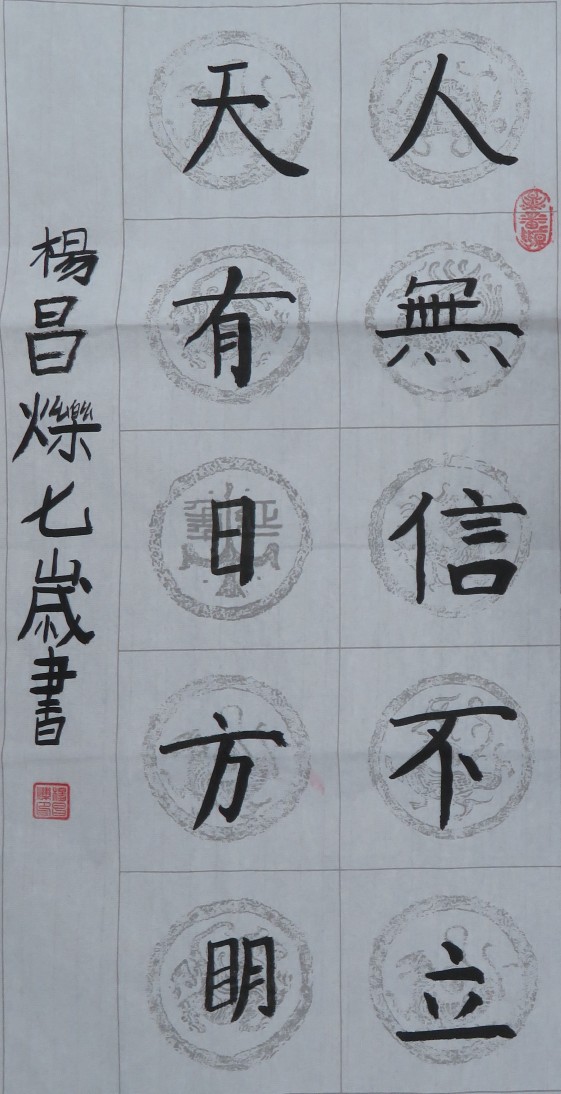 人無信不立
天有日方明
楊昌爍七歲書